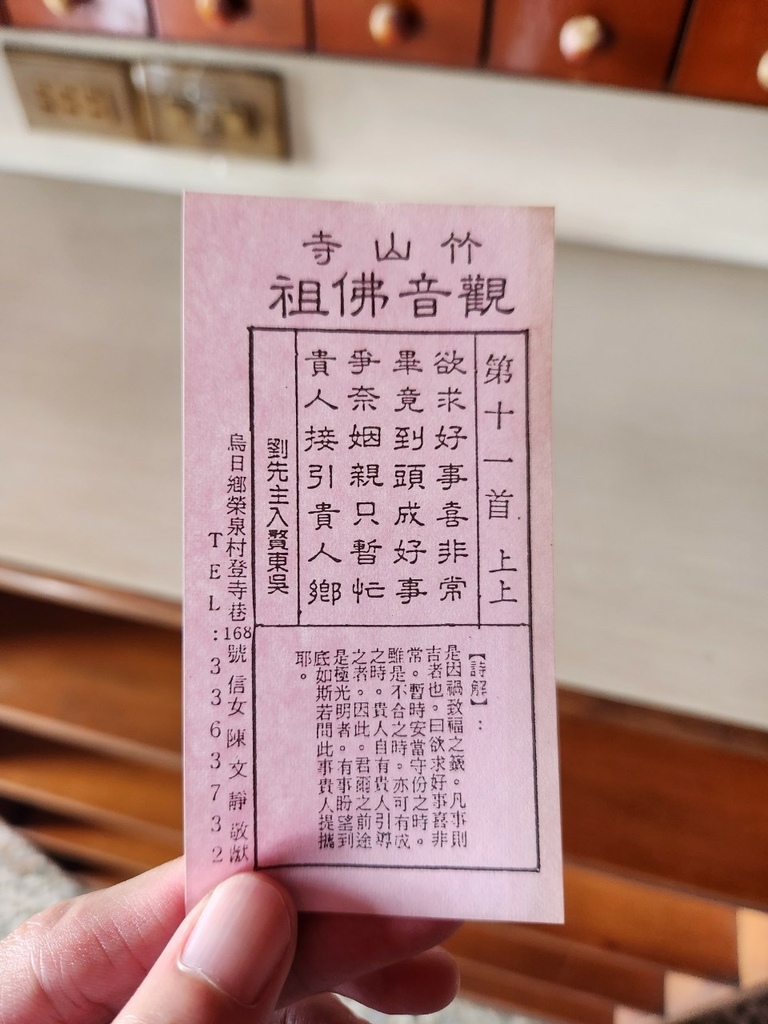 竹山寺
觀音佛祖
第十一首 上上
欲求好事喜非常
畢竟到頭成好事
爭奈姻親只暫忙
貴人接引貴人鄉
劉先主入贅東吳
【詩解】:
是因禍致福之籤。凡事則
吉者也。曰欲求好事喜非
常。暫時安當守份之時。
雖是不合之時。亦可有成
之時。貴人自有貴人引導
之者。因此。君爾之前途
是極光明者。有事盼望到
底如斯若問此事貴人提攜
耶。
烏日鄉榮泉村登寺巷168號 信女 陳文靜 敬獻
TEL:3363732